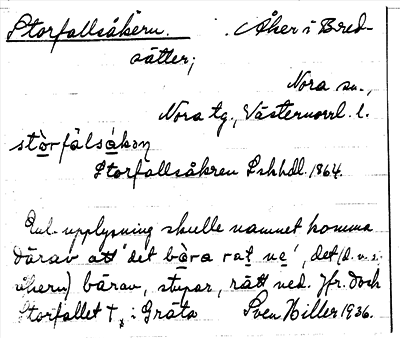 Storfallsåkern. Åker i Bred-
sätter;
Nora sn.,
Nora tg., Västernorrl. l.
stòrfàlsákən
Storfallsåkren Lskhdl. 1864.
Enl. upplysning skulle namnet komma
därav att 'det bàra rat ne', det (d. v. s.
åkern) bärav, stupar, rätt ned. Jfr. dock
Storfallet †, i Gräta Sven Hiller 1936.